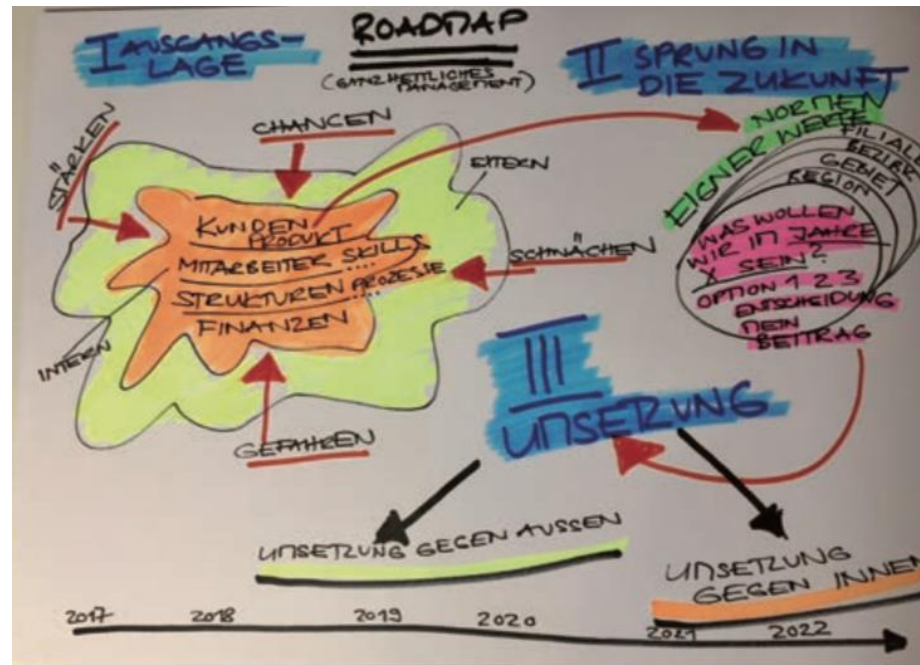 ROADMAP
(GANZHEITLICHES
MANAGEMENT)
I AUSGANGS-
LAGE
STÄRKEN
CHANCEN
EXTERN
KUNDEN
PRODUKT
MITARBEITER SKILLS
STRUKTUREN PROZESSE
FINANZEN
SCHWÄCHEN
INTERN
GEFAHREN
II SPRUNG IN
DIE ZUKUNFT
NORMEN
EIGNER WERTE
FILIAL
BEZIRK
GEBIET
REGION
WAS WOLLEN
WIR IM JAHRE
X SEIN?
OPTION 1 2 3
ENTSCHEIDUNG
MEIN
BEITRAG
III
UMSERUNG
UMSETZUNG GEGEN AUSSEN
UMSETZUNG
GEGEN INNEN
2017 2018 2019 2020 2021 2022